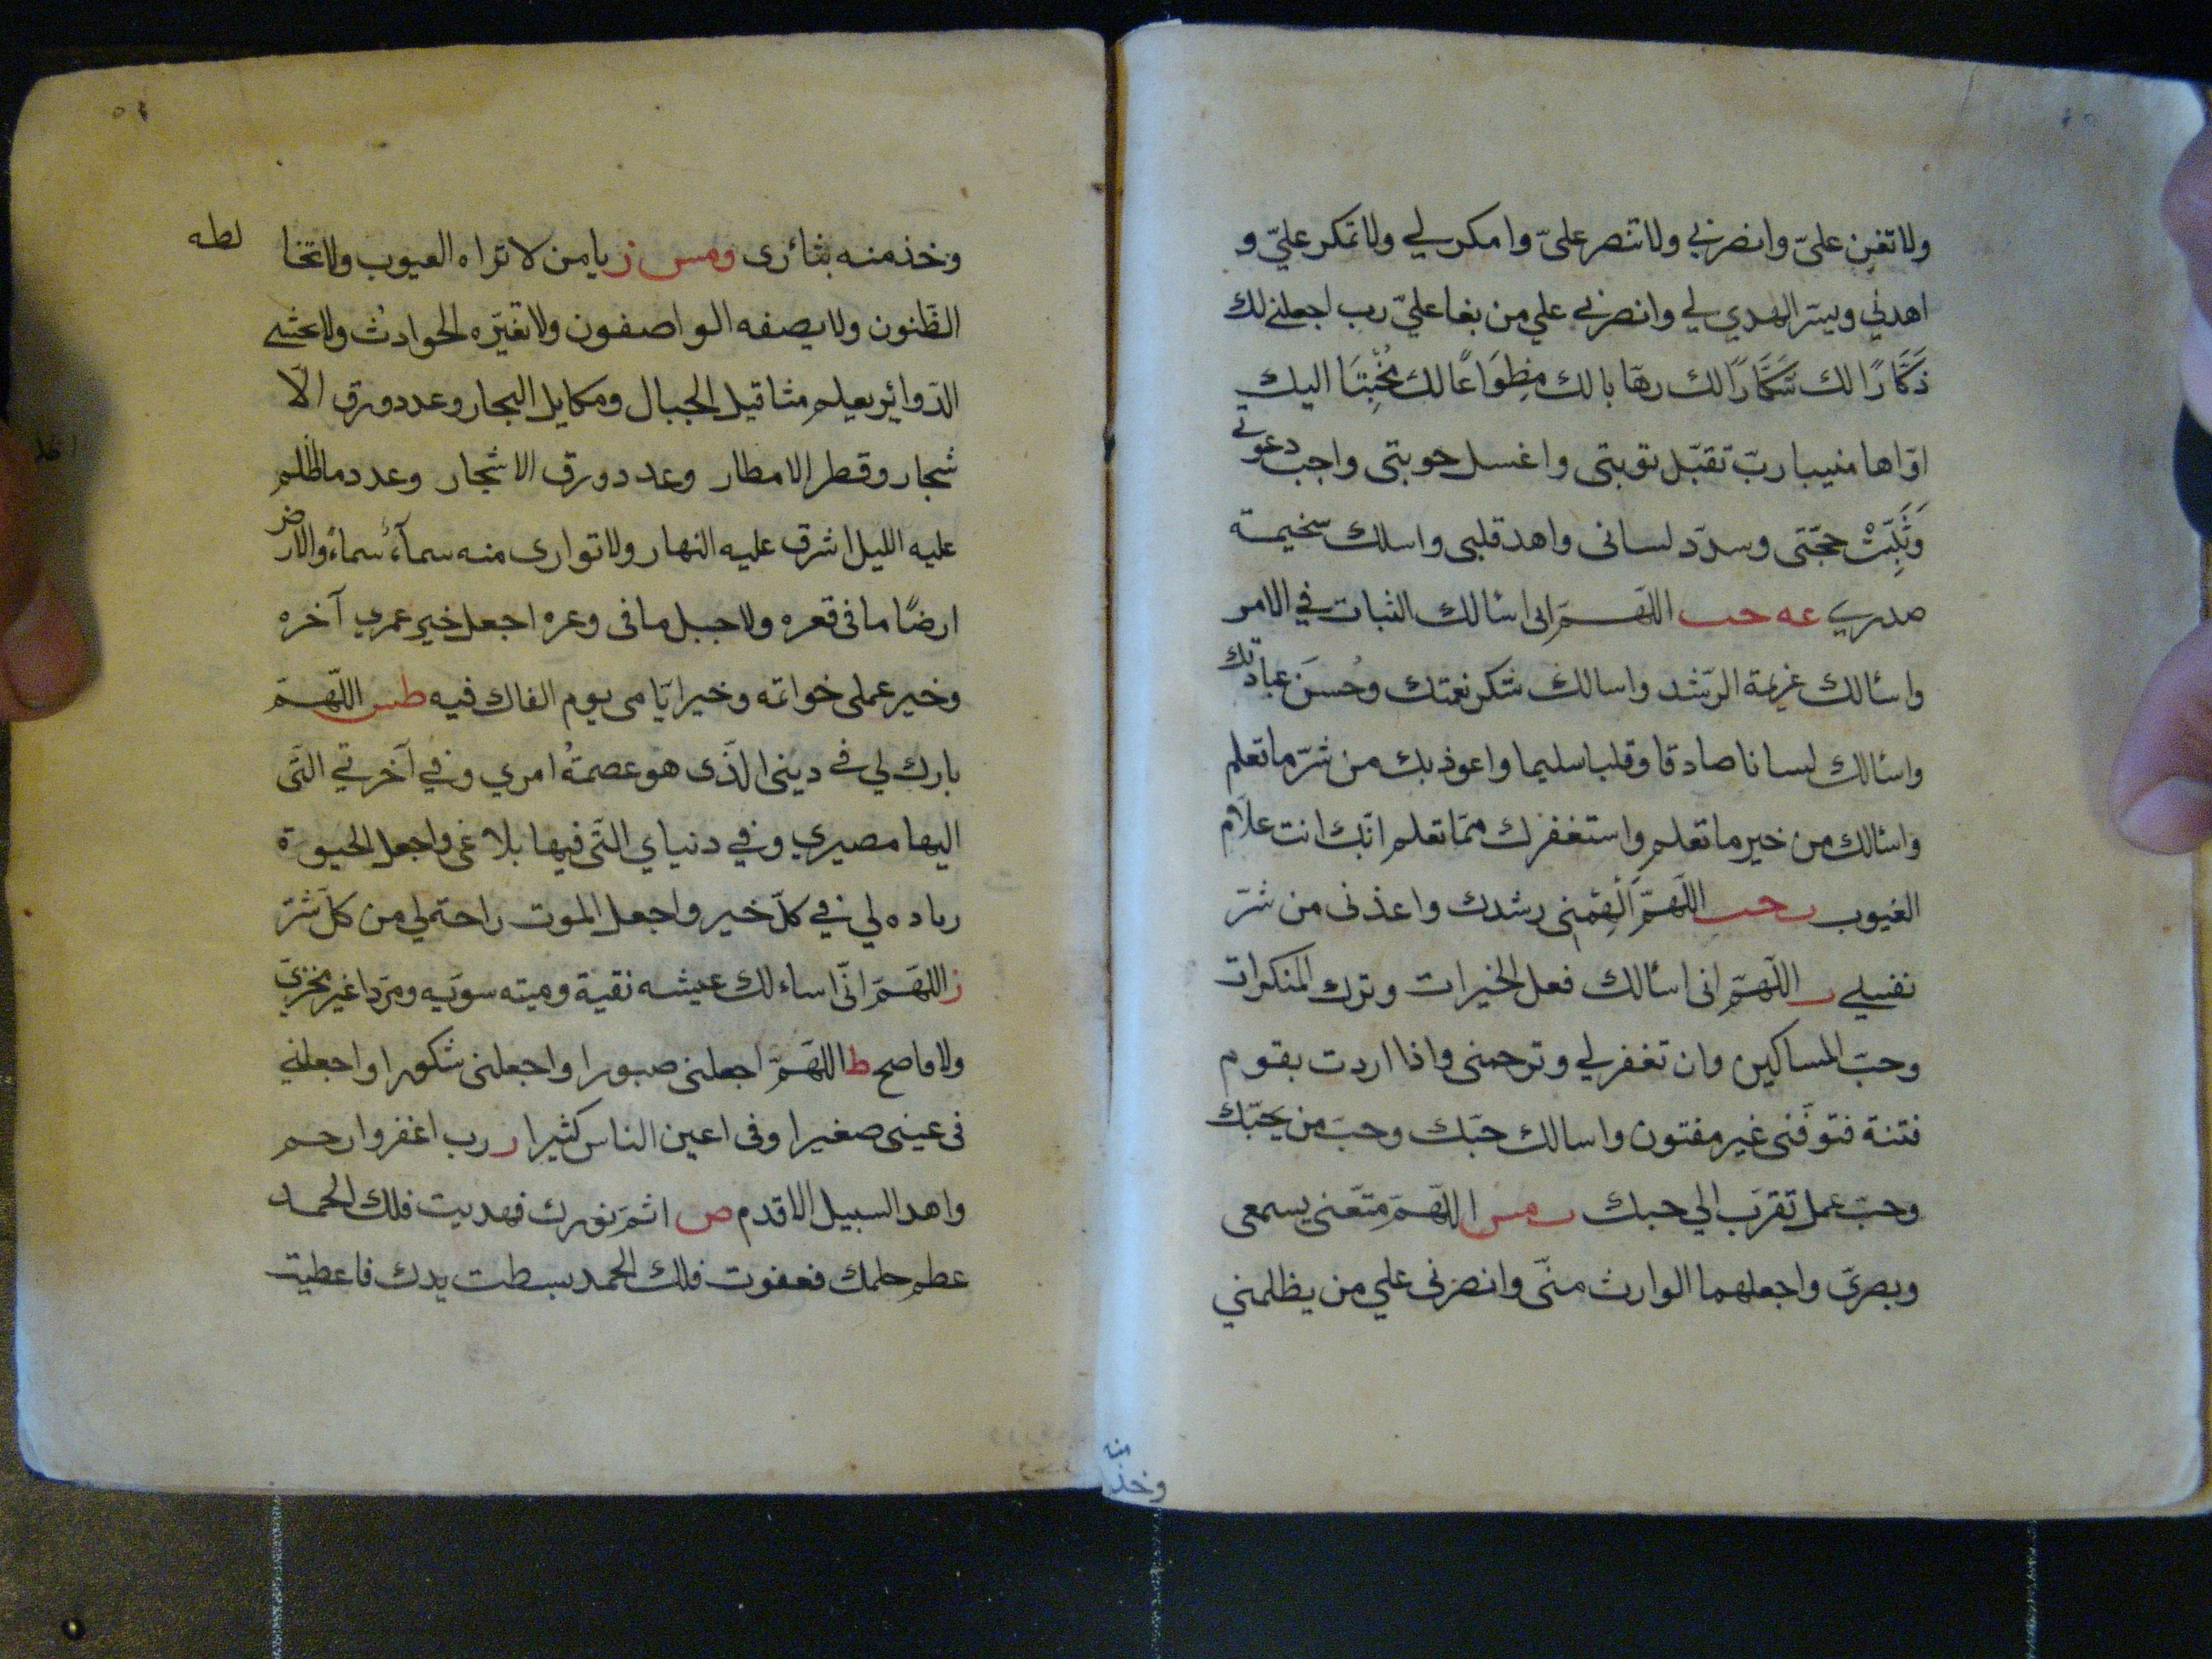 ولا تعن علىّ وانصرني ولا تنصر علىّ وامكر لي ولا تمكر عليّ و
اهدني ويسّر الهدي لي وانصرني علي من بغا عليّ رب اجعلني لك
ذَكَّارًا لك شَكَّارًا لك رهّابا لك مِطوَاعًا لك مُخْبِتًا اليك
اوّاها منيبا ربّ تقبّل توبتى واغسل حوبتى واجب دعوتي
وَثَبِّتْ حجّتى وسدّد لسانى واهد قلبى واسلك سخيمة
صدري عه حب اللهمّ انى اسٔالك الثبات في الامر
واسٔالك عزيمة الرّشد واسالك شكر نعمتك وحُسنَ عبادتك
واسٔالك لسانا صادقا وقلبا سليما واعوذ بك من شرّ ما تعلم
واسٔالك من خير ما تعلم واستغفرك ممّا تعلم انّك انت علّام
الغيوب ت حب اللهمّ اَلْهِمْنِى رشدك واعذنى من شرّ
نفسي ت اللّهمّ انى اسٔالك فعل الخيرات وترك المنكرات
وحبّ المساكين وان تغفر لي وترحمنى واذا اردت بقوم
فتنة فتوفّنى غير مفتون واسالك حبّك وحبّ من يحبّك
وحبّ عمل تقرّب الي حبك ت مس اللهمّ متّعنى بسمعى
وبصرىّ واجعلهما الوارث منّى وانصرنى علي من يظلمني
وخذ منه
وخذ منه بثأرى ومس ز يا من لا تراه العيوب ولا تخا
لطه
الظّنون ولا يصفه الواصفون ولا تغيّره الحوادث ولا يخشى
الدّوائر يعلم مثاقيل الجبال ومكايل البحار وعدد ورق الا
شجار وقطر الامطار وعدد ورق الاشجار وعدد ما اظلم
عليه الليل اشرق عليه النهار ولا توارى منه سمآءٌ سماءً والارض
ارضًا ما فى قعره ولا جبل ما فى وعره اجعل خير عمري آخره
وخير عملى خواتمه وخير ايّامى يوم القاك فيه طس اللّهمّ
بارك لي في دينى الّذى هو عصمةُ امري وفي آخرتي التّى
اليها مصيري وفي دنياي التّى فيها بلاغى واجعل الحيوة
رىاده لي في كلّ خير واجعل الموت راحة لي من كلّ شرّ
ز اللهمّ انّى اساءلك عيشه نقية وميته سويّه ومردّا غير مخزيّ
ولا فاضح ط اللهمّ اجعلنى صبورا واجعلنى شكورا واجعلني
فى عينى صغيرا وفى اعين الناس كثيرا ر رب اغفر وارحم
واهد السبيل الاقدم ص اتمّ نورك فهديت فلك الحمد
عظم حلمك فعفوت فلك الحمد بسطت يدك فاعطيت